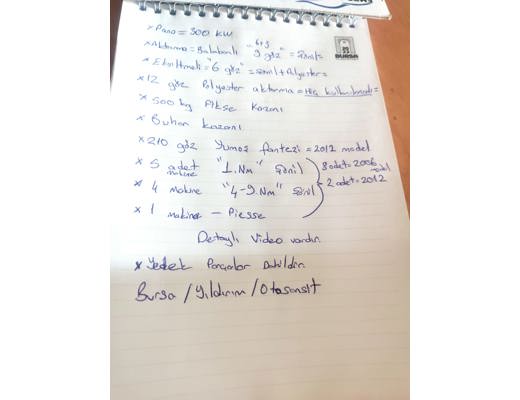 BURSA
x Pano = 300 KW
x Aktarma = Balonlu 6+3 "9 göz" = Şönil =
x Eksiltmeli "6 göz" = Şönil + Polyester =
x 12 göz Polyester aktarma = Hiç kullanılmadı =
x 500 kg Fikse Kazanı
x Buhar kazanı
x 210 göz Yumoş fantezi = 2012 model
x 5 adet makine "1.Nm" Şönil 8 adet = 2006 model
x 4 makine "4-9.Nm" Şönil 2 adet = 2012
x 1 makine - Piesse
Detaylı Video vardır.
x Yedek Parçalar Dahildir.
Bursa / Yıldırım / Otosansit